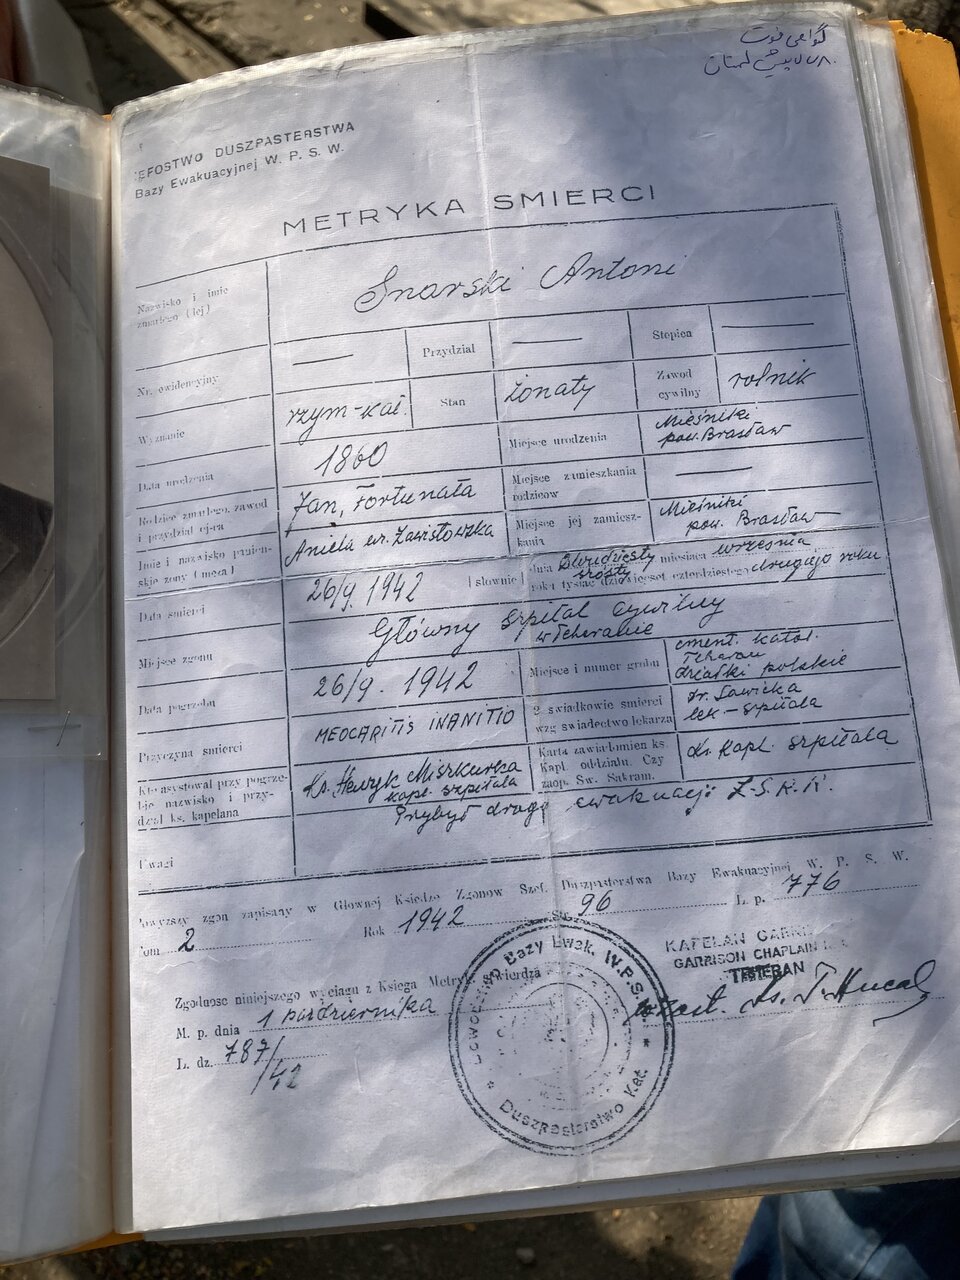 گواهی فوت
EFOSTWO DUSZPASTERSTWA
Bazy Ewakuacyjnej W. P. S. W.
METRYKA SMIERCI
Nazwisko i imie zmarłego (łej) Snarski Antoni
Nr. ewidencyjny — Przydział — Stopien —
Wyznanie rzym-kat. Stan żonaty Zawod cywilny rolnik
Data urodzenia 1860 Miejsce urodzenia Mieśniki pow. Brasław
Rodzice zmarłego, zawod i przydział ojca Jan, Fortunata Miejsce zamieszkania rodzicow —
Imie i nazwisko panienskie zony (meza) Aniela ur. Zawistowska Miejsce jej zamieszkania Mieśniki pow. Brasław
Data smierci 26/9. 1942 (słownie) dnia Dwudziesty szósty miesiąca września roku tysiac dziewiecset czterdziestego drugiego roku
Miejsce zgonu Główny Szpital Cywilny w Teheranie
Data pogrzebu 26/9. 1942 Miejsce i numer grobu cment. katol. Teheran działki polskie
Przyczyna smierci MEOCARITIS INANITIO 2 swiadkowie smierci wzg swiadectwo lekarza dr. Sawicka lek-szpitala
Kto asystował przy pogrzebie nazwisko i przydział ks. kapelana Ks. Henryk Miszkurka kapl. szpitala Karta zawiadomien ks. Kapl. oddziału. Czy zaop. Sw. Sakram. ks. kapl. szpitala
Uwagi Przybył drogą ewakuacji Z.S.R.R.
Powyzszy zgon zapisany w Głownej Ksiedze Zgonow Szef. Duszpasterstwa Bazy Ewakuacyjnej W. P. S. W.
Tom 2 Rok 1942 Str. 96 L. p. 776
KAPELAN GARNIZ
GARRISON CHAPLAIN
TEHERAN
Zgodnosc niniejszego wyciagu z Ksiega Metryk stwierdza
M. p. dnia 1 października
L. dz. 787/42
Dowodztwo Bazy Ewak. W.P.S.W.
Duszpasterstwo Kat.